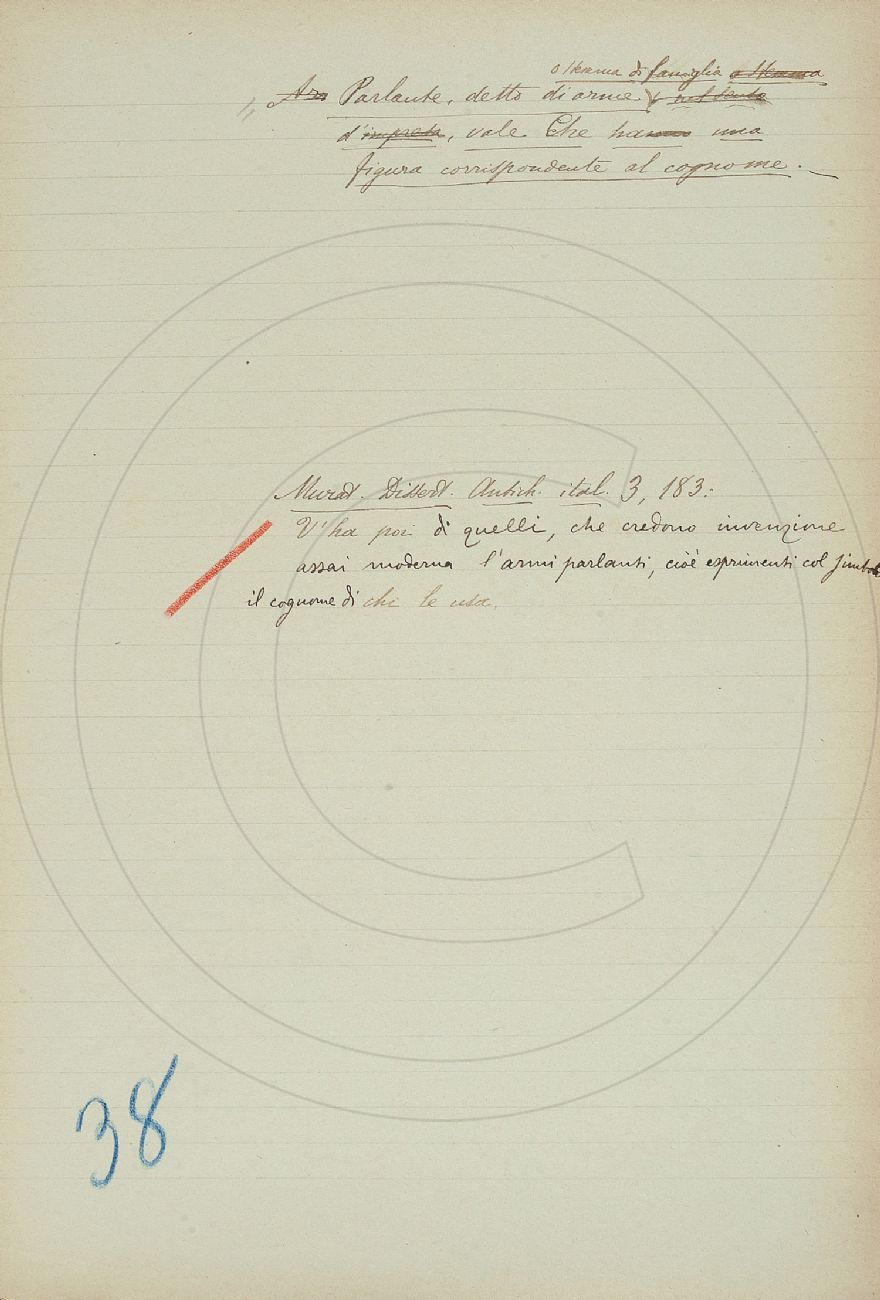 o stemma di famiglia o stemma
„ Arm Parlante, detto di arme
d'impresa, vale Che hanno una
figura corrispondente al cognome.
Murat. Dissert. Antich. ital. 3, 183:
V'ha poi di quelli, che credono invenzione
assai moderna l'armi parlanti, cioè esprimenti col simbolo
il cognome di chi le usa.
38